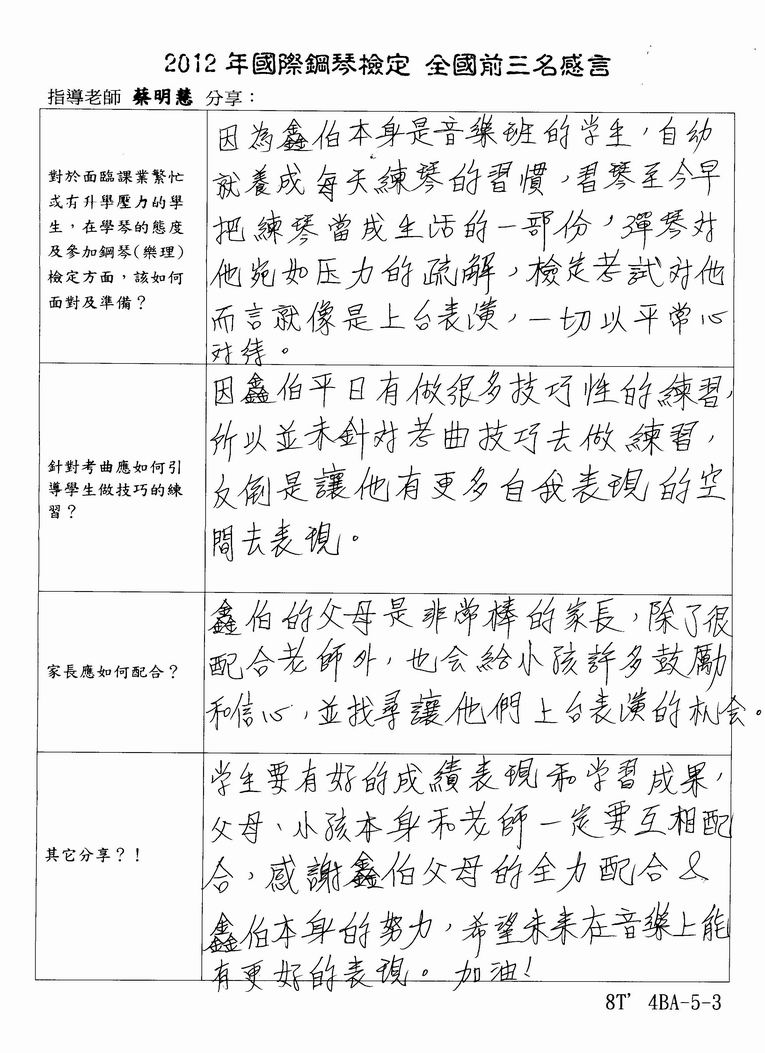 2012年國際鋼琴檢定 全國前三名感言
指導老師 蔡明慧 分享：
對於面臨課業繁忙
或有升學壓力的學
生，在學琴的態度
及參加鋼琴(樂理)
檢定方面，該如何
面對及準備？
因為鑫伯本身是音樂班的学生，自幼
就養成每天練琴的習慣，習琴至今早
把練琴當成生活的一部份，彈琴対
他宛如压力的疏解，檢定考試対他
而言就像是上台表演，一切以平常心
対待。
針對考曲應如何引
導學生做技巧的練
習？
因鑫伯平日有做很多技巧性的練習，
所以並未針対考曲技巧去做練習，
反倒是讓他有更多自我表現的空
間去表現。
家長應如何配合？
鑫伯的父母是非常棒的家長，除了很
配合老師外，也会給小孩許多鼓勵
和信心，並找尋讓他們上台表演的机会。
其它分享？!
学生要有好的成績表現和学習成果，
父母、小孩本身和老師一定要互相配
合，感謝鑫伯父母的全力配合&
鑫伯本身的努力，希望未來在音樂上能
有更好的表現。加油!
8T' 4BA-5-3